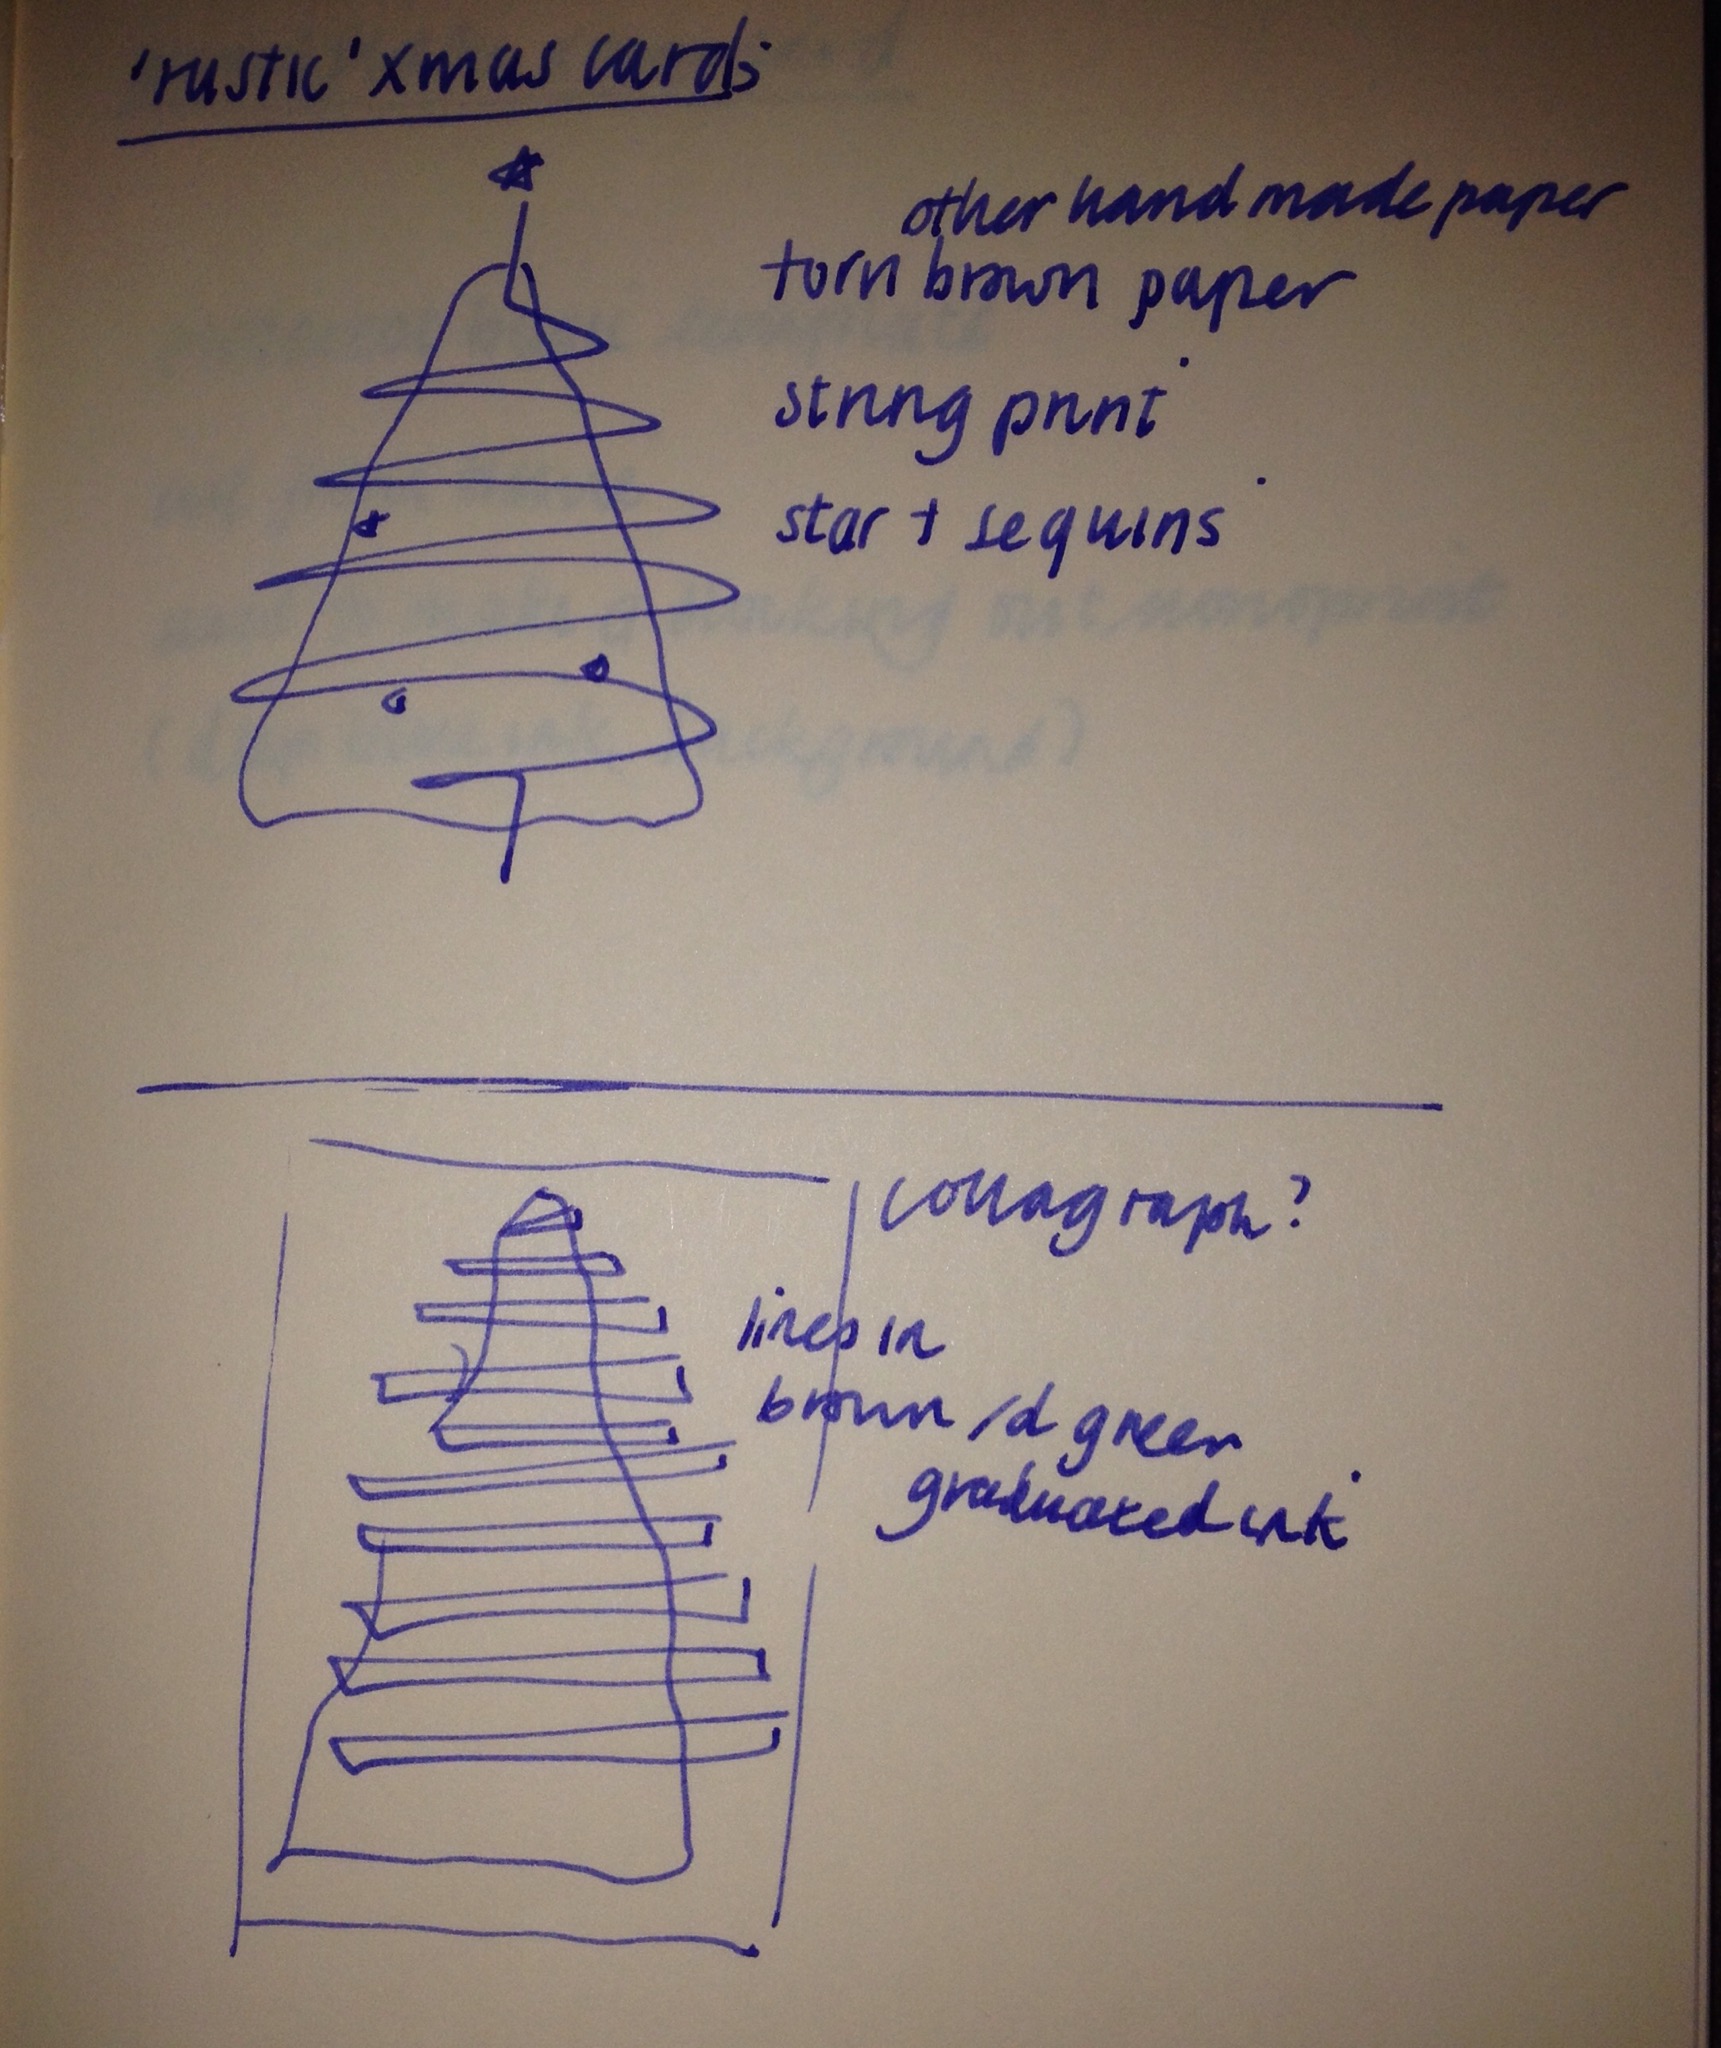 'rustic' xmas cards
other hand made paper
torn brown paper
string print
star + sequins
collagraph?
lines in
brown / d green
graduated ink